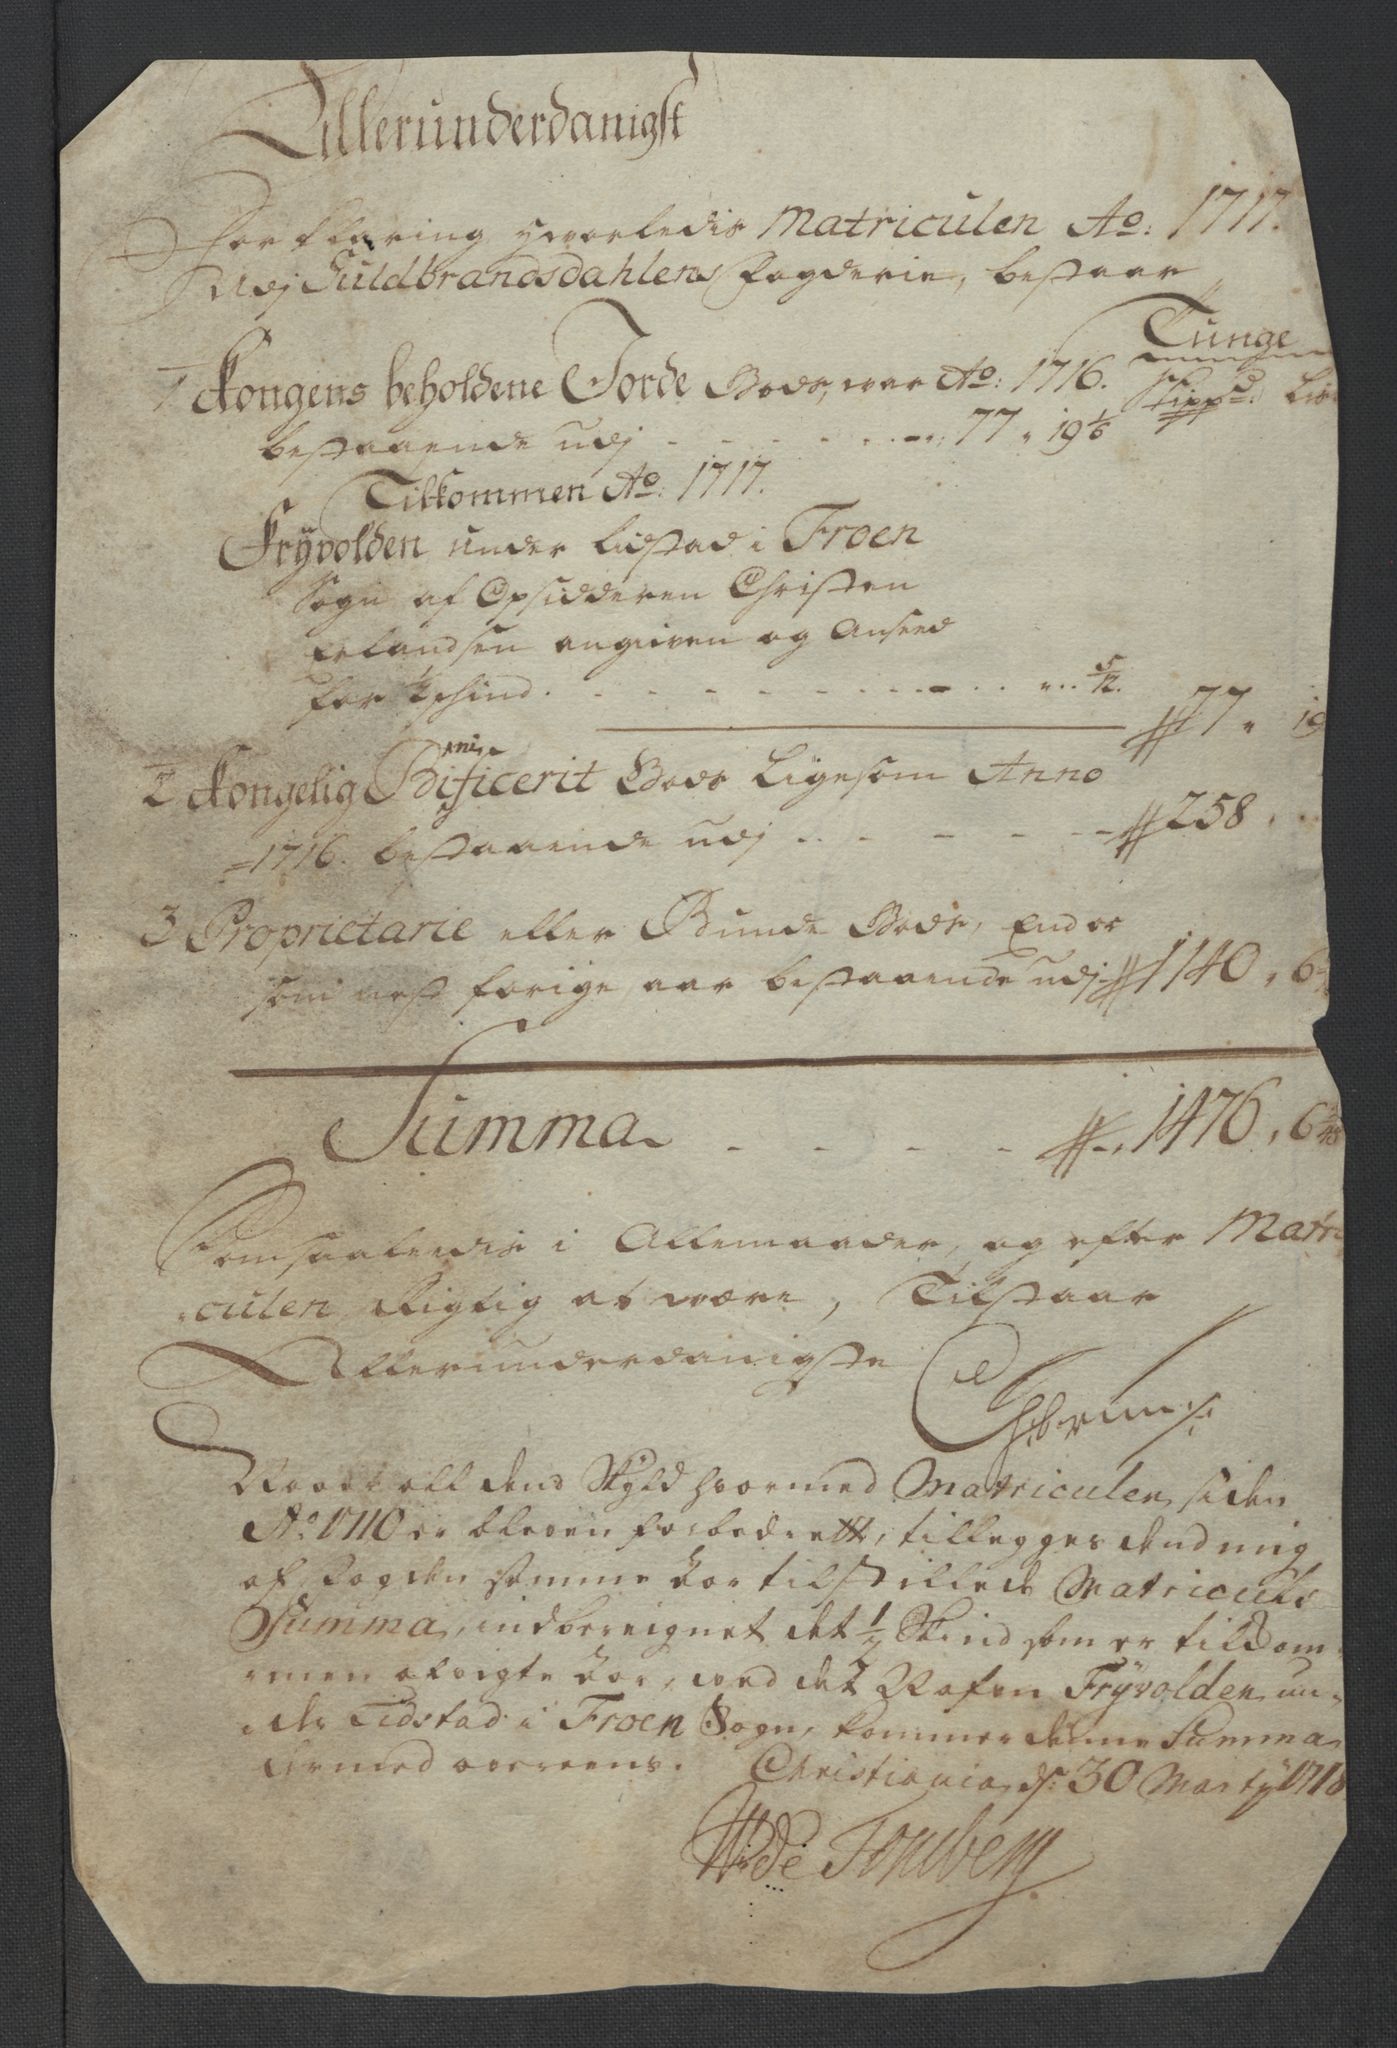 Allerunderdanigst
Forklaring hvorledis Matriculen Ao: 1717.
Udj Guldbrandsdahlens fogderie, bestaar
Tunge
1 Kongens beholdene Jorde Gods, war Ao: 1716. Skippd: Lis
bestaaende udj - - - - - - 77 " 19 1/6
Tilkommen Ao: 1717.
Fryvolden under Lidstad i Froen
Sogn af Opsidderen Christen
Erlandsen angiven og Anseed
for 1/2 schind. - - - - - - - - - " .. 5/12.
77 " 19
2 Kongelig Benificerit Gods Ligesom Anno
1716. bestaaende udj - - - - - 258 "
3 Proprietarie eller Bunde Gods, End og
som nest forige aar bestaaende udj 1140 " 6
Summa - - - - - 1476 " 6
Som saaledis i Allemaader, og efter Matri
culen Rigtig at være, Tilstaar
Allerunderdanigste
Naar all dend Skyld hvormed Matriculen siden
Ao 1710 er bleven forbedrett, tillegges dend mig
af fogden samme Aar tilstillede Matriculs
Summa, indbereignet det 1/2 Skind som er tilkom
men afvigte Aar, ved det Nafn Fryvolden un
der Lidstad i Froen Sogn, kommer denne Summa
hermed overeens. Christiania d: 30 Marty 1718